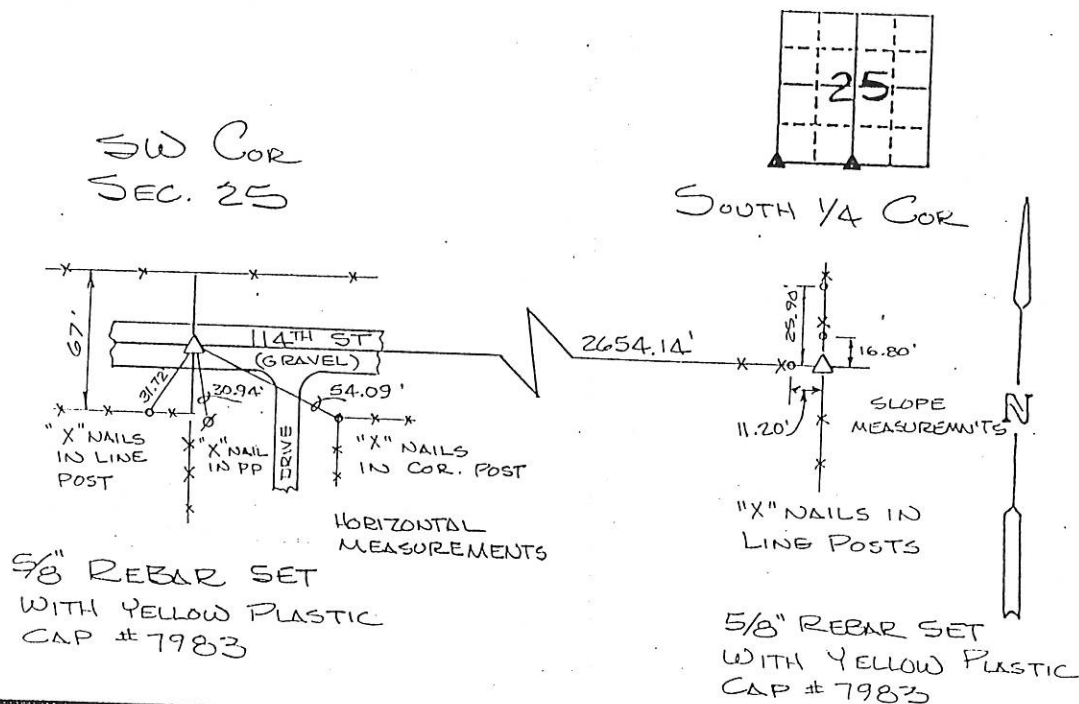 25
SW COR
SEC. 25
SOUTH 1/4 COR
67'
114TH ST
(GRAVEL)
31.72'
30.94'
54.09'
2654.14'
25.90'
16.80'
11.20'
SLOPE
MEASUREMN'TS
N
"X" NAILS
IN LINE
POST
"X" NAIL
IN PP
DRIVE
"X" NAILS
IN COR. POST
HORIZONTAL
MEASUREMENTS
"X" NAILS IN
LINE POSTS
5/8" REBAR SET
WITH YELLOW PLASTIC
CAP # 7983
5/8" REBAR SET
WITH YELLOW PLASTIC
CAP # 7983